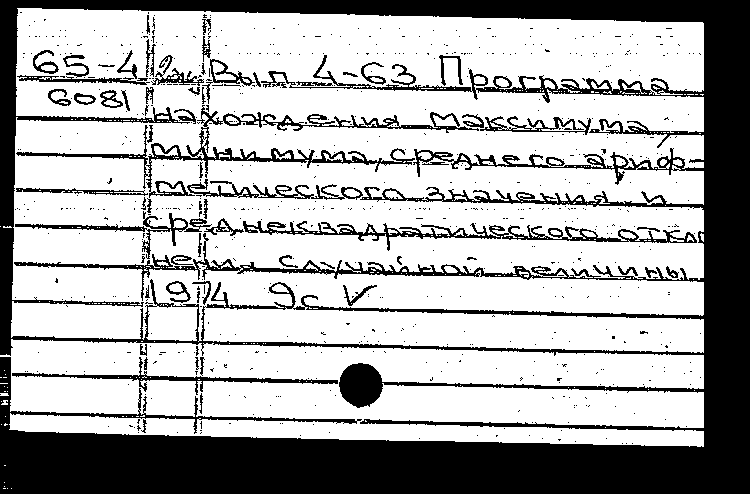 65-4 2эк Вып 4-63 Программа
6081 нахождения максимума,
минимума, среднего ариф-
метического значения и
среднеквадратического откло
нения случайной величины
1974 9с ✓